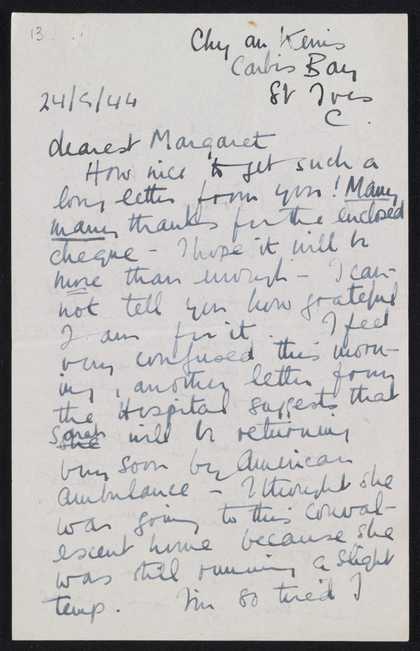 13
Chy an Kerris
Carbis Bay
St Ives
C.
24/9/44
dearest Margaret
How nice to get such a
long letter from you! Many
many thanks for the enclosed
cheque – I hope it will be
more than enough – I can-
not tell you how grateful
I am for it. I feel
very confused this morn-
ing, another letter from
the Hospital suggests that
Sarah will be returning
very soon by American
ambulance – I thought she
was going to this conval-
escent home because she
was still running a slight
temp. I'm so tired I